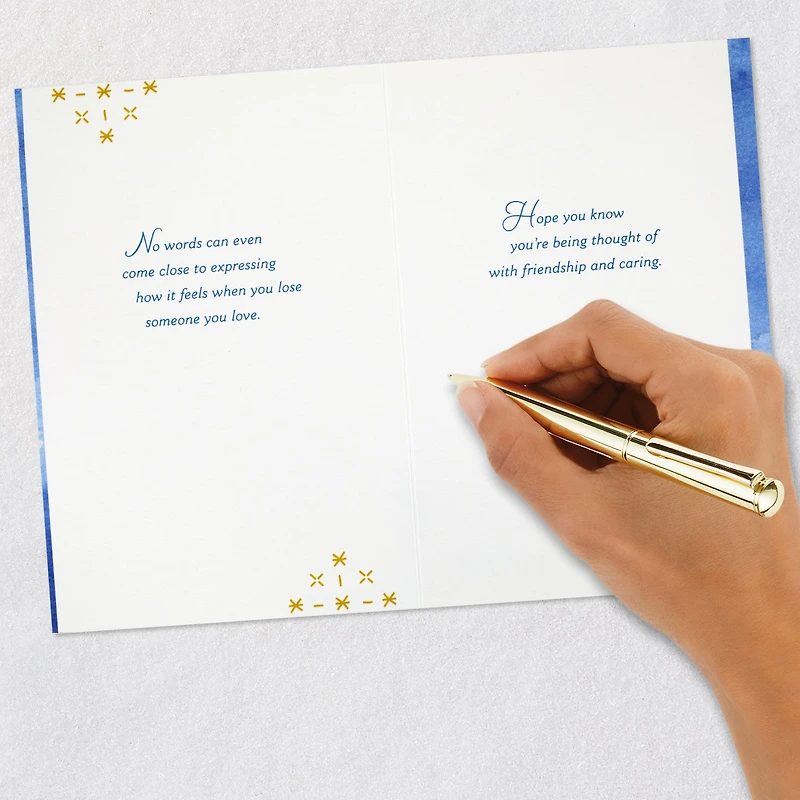 No words can even
come close to expressing
how it feels when you lose
someone you love.
Hope you know
you're being thought of
with friendship and caring.